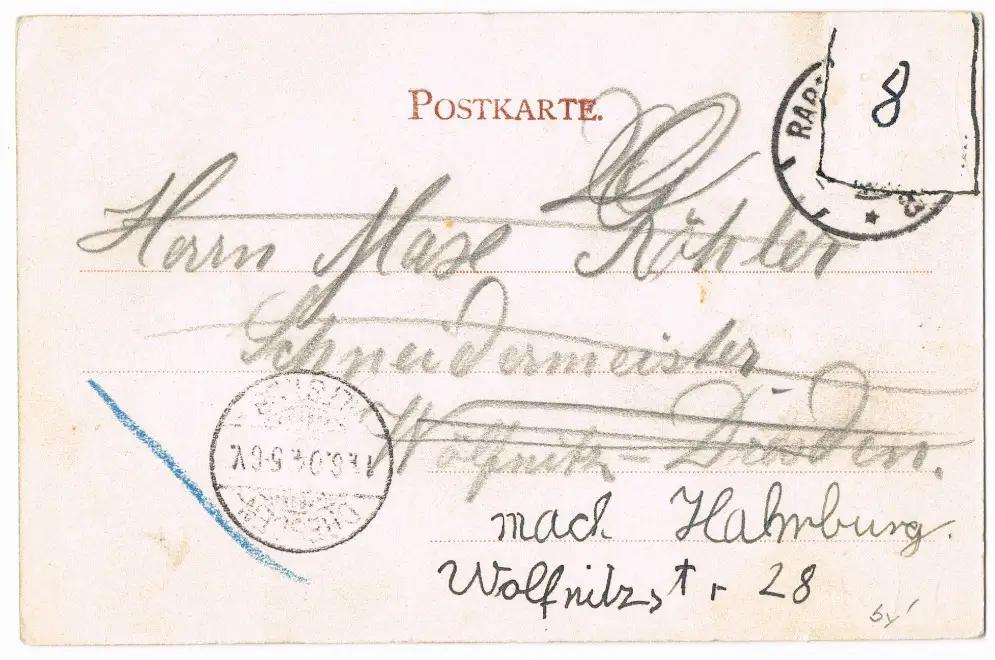 POSTKARTE.
8
RAB
Herrn Max Köhler
Schneidermeister
Wölfnitz - Dresden.
nach Hahnburg.
Wolfnitzstr 28
by